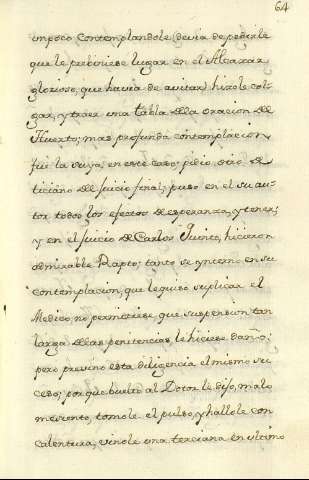 64
unpoco contemplandole (devia de pedirle
que le previniese lugar en el Alcazar
glorioso, que havia de avitar) hizole col-
gar, y traer una tabla de la oracion del
Huerto; mas profunda contemplacion
fue la suya, en este caso: pidio, otro de
ticiano del juicio final; puso en el su au-
tor todos los efectos de esperanza, y temor;
y en el juicio de Carlos Quinto, hicieron
admirable Rapto; tanto se ynterno en su
contemplacion, que le quiso suplicar el
Medico, no permitiese que suspension tan
larga de las penitencias, le hiciese daño;
pero previno esta diligencia el mismo su
ceso; porque buelto al Dotor le dijo, malo
me siento, tomole el pulso, y hallole con
calentura, vinole una terciana en ultimo